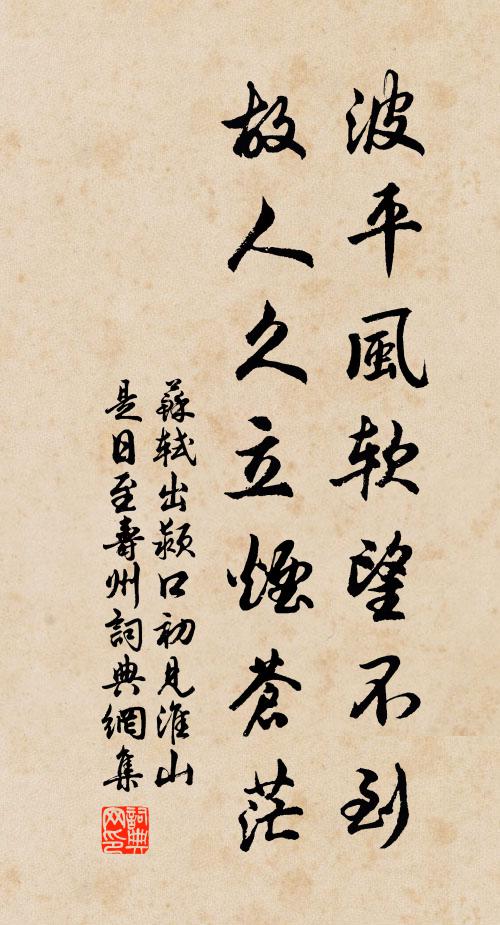 波平風软望不到
故人久立煙蒼茫
蘇轼出颍口初見淮山
是日至壽州詞典網集
詞典网印